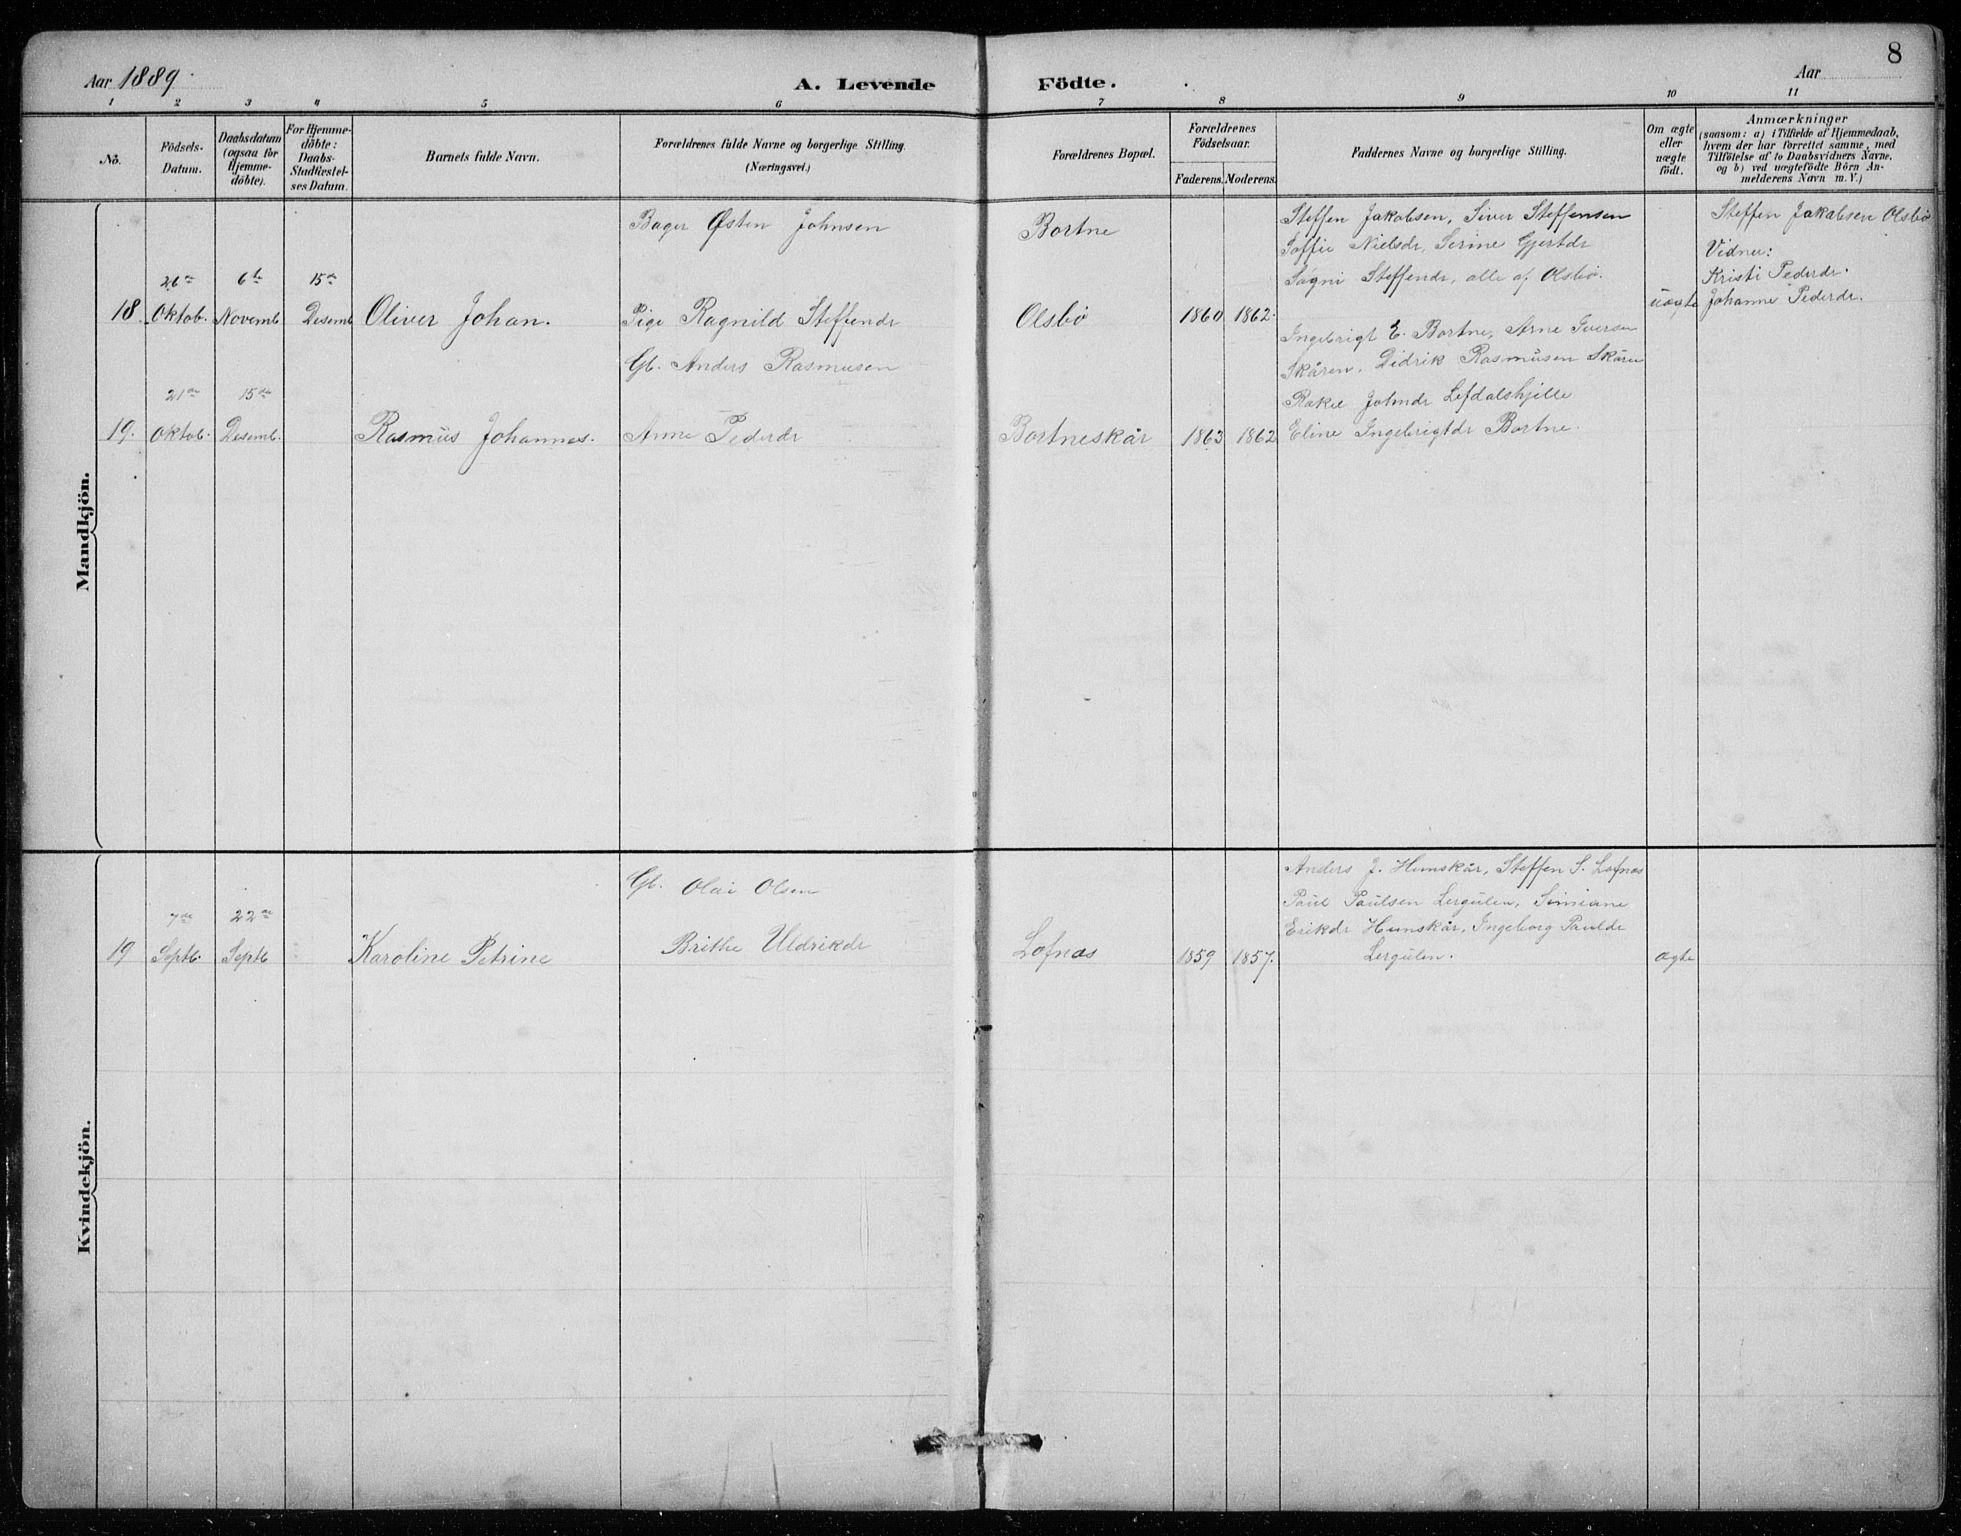 8
Aar 1889. A. Levende Födte. Aar
1 2 3 4 5 6 7 8 9 10 11
No.
Födsels-
Datum.
Daabsdatum
(ogsaa for
Hjemme-
döbte).
For Hjemme-
döbte:
Daabs-
Stadfæstel-
ses Datum.
Barnets fulde Navn.
Forældrenes fulde Navne og borgerlige Stilling.
(Næringsvei.)
Forældrenes Bopæl.
Forældrenes
Födselsaar.
Faderens. Moderens.
Faddernes Navne og borgerlige Stilling.
Om ægte
eller
uægte
födt.
Anmærkninger
(saasom: a) i Tilfælde af Hjemmedaab,
hvem der har forrettet samme, med
Tilföielse af to Daabsvidners Navne,
og b) ved uægtefödte Börn An-
melderens Navn m. V.)
Mandkjön.
18.
26de
Oktob.
6te
Novemb
15de
Desemb
Oliver Johan.
Bager Østen Johnsen
Pige Ragnild Steffendr
Bortne
Olsbö
1860 1862.
Steffen Jakobsen, Siver Steffensen
Soffie Nielsdr, Serine Gjertdr
Søgni Steffendr, alle af Olsbö.
uægte
Steffen Jakobsen Olsbö
Vidner:
Kristi Pederdr.
Johanne Pederdr.
19.
21de
Oktob.
15de
Desemb.
Rasmus Johannes.
Gb. Anders Rasmusen
Anne Pederdr
Bortneskår
1863 1862
Ingebrigt E. Bortne, Arne Iversen
Skåren, Didrik Rasmusen Skåren
Rakel Johndr Lefdalshjelle
Eline Ingebrigtdr Bortne.
Kvindekjön.
19
7de
Septb.
22de
Septb
Karoline Petrine
Gb. Olai Olsen
Brithe Uldrikdr
Lofnæs
1859 1857.
Anders J. Humskår, Steffen S. Lofnæs
Paul Paulsen Lergulen, Simiane
Erikdr Humskår, Ingeborg Pauldr
Lergulen.
ægte